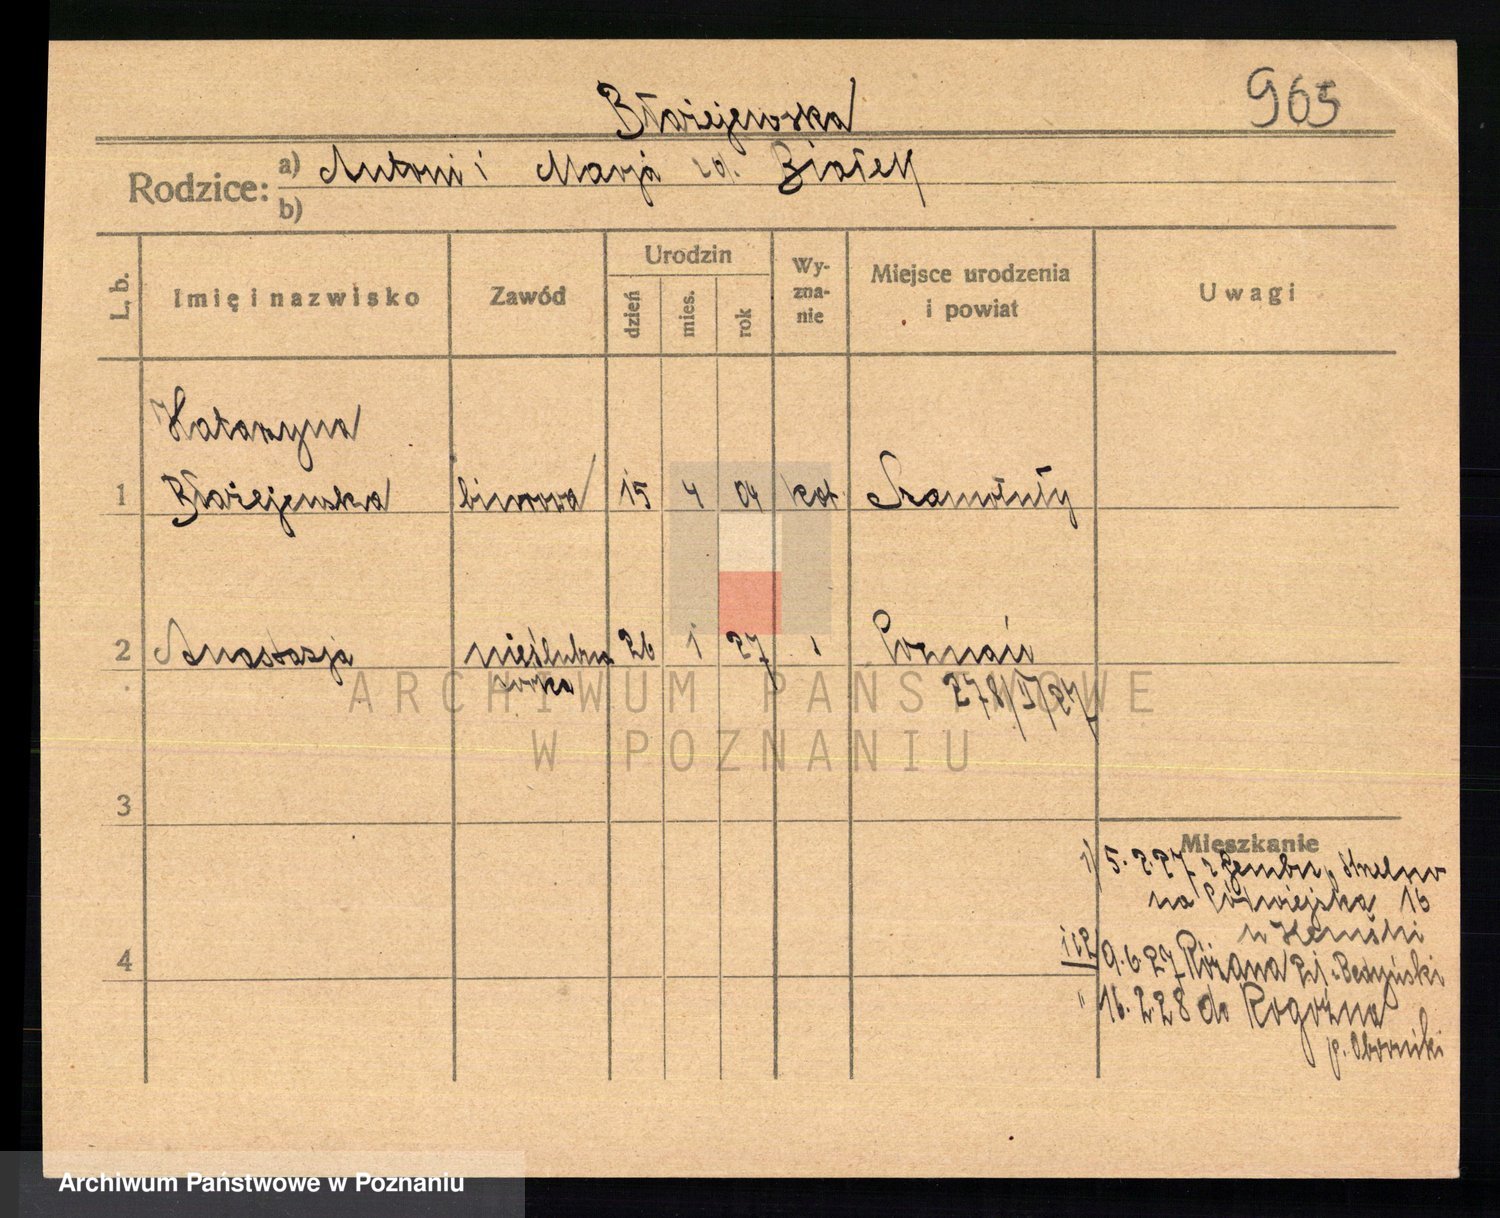 965
Błażejewska
Rodzice: a) Antoni i Marja rd. Białek
b)
L. b.
Imię i nazwisko
Zawód
Urodzin
dzień
mies.
rok
Wy-
zna-
nie
Miejsce urodzenia
i powiat
Uwagi
Katarzyna
1 Błażejewska biurowa 15 4 04 kat. Szamotuły
2 Anastazja nieślubna 26 1 27 Poznań
córka 278/I/27
ARCHIWUM PAŃSTWOWE
W POZNANIU
3
Mieszkanie
1) 5.2.27 z Gembic, Strzelno
na Półwiejska 16
u
4
i 2) 9.6.27 Różana
" 16.2.28 do Rogoźna
p. Oborniki
Archiwum Państwowe w Poznaniu